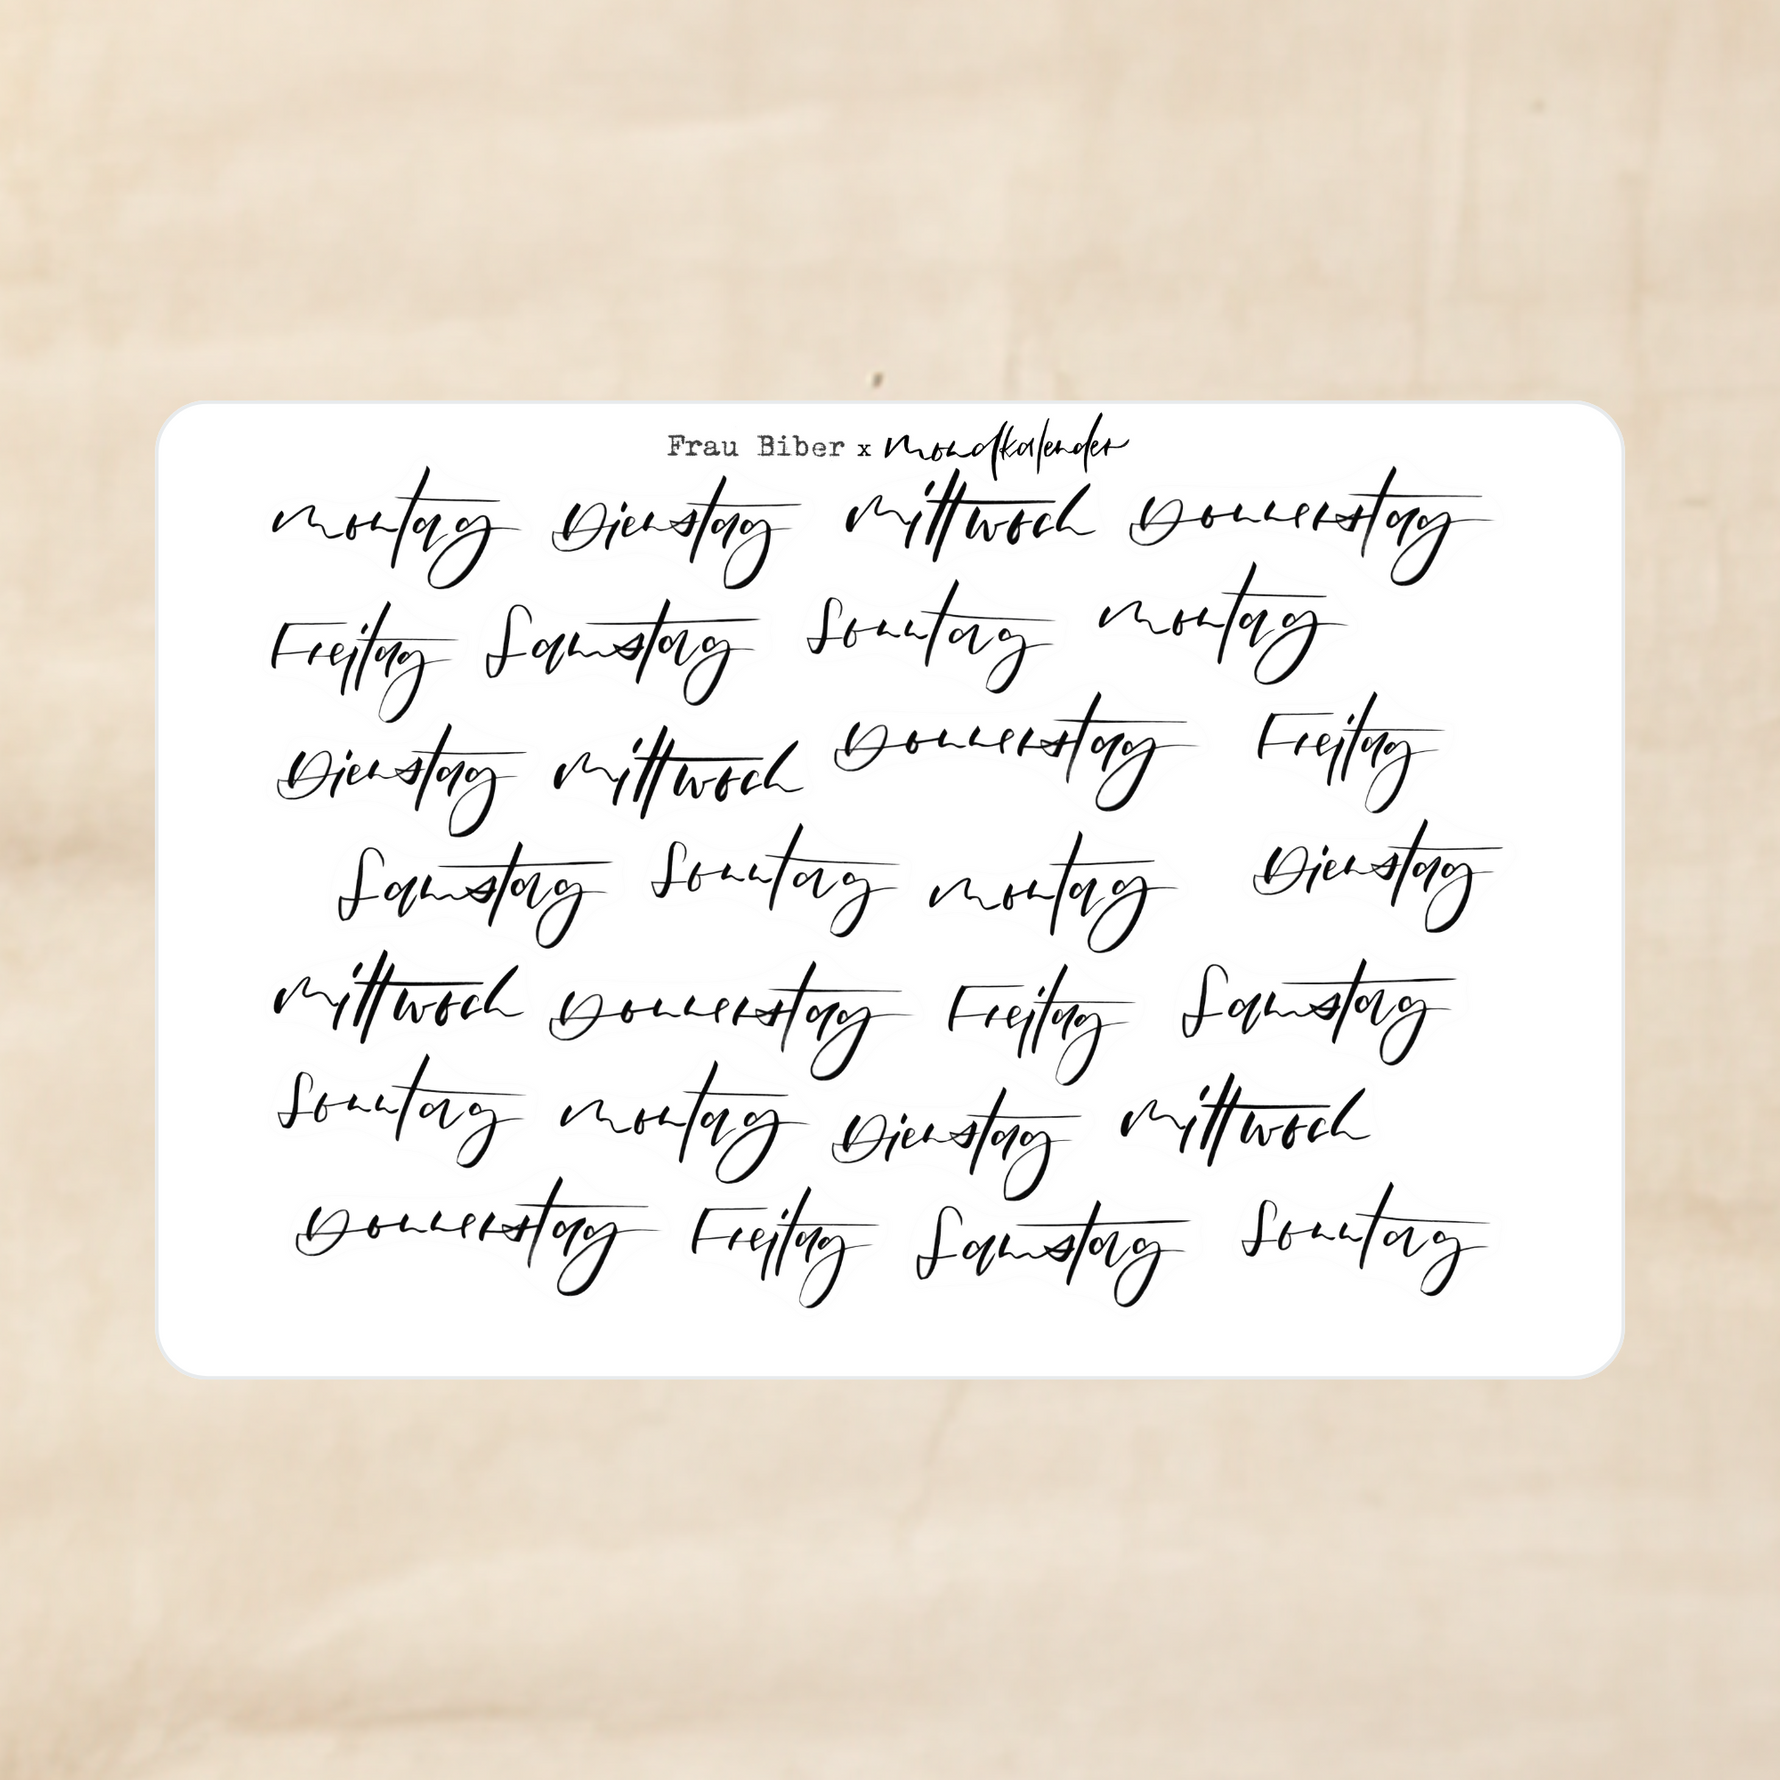 Frau Biber x mondkalender
montag Dienstag mittwoch Donnerstag
Freitag Samstag Sonntag montag
Dienstag mittwoch Donnerstag Freitag
Samstag Sonntag montag Dienstag
mittwoch Donnerstag Freitag Samstag
Sonntag montag Dienstag mittwoch
Donnerstag Freitag Samstag Sonntag